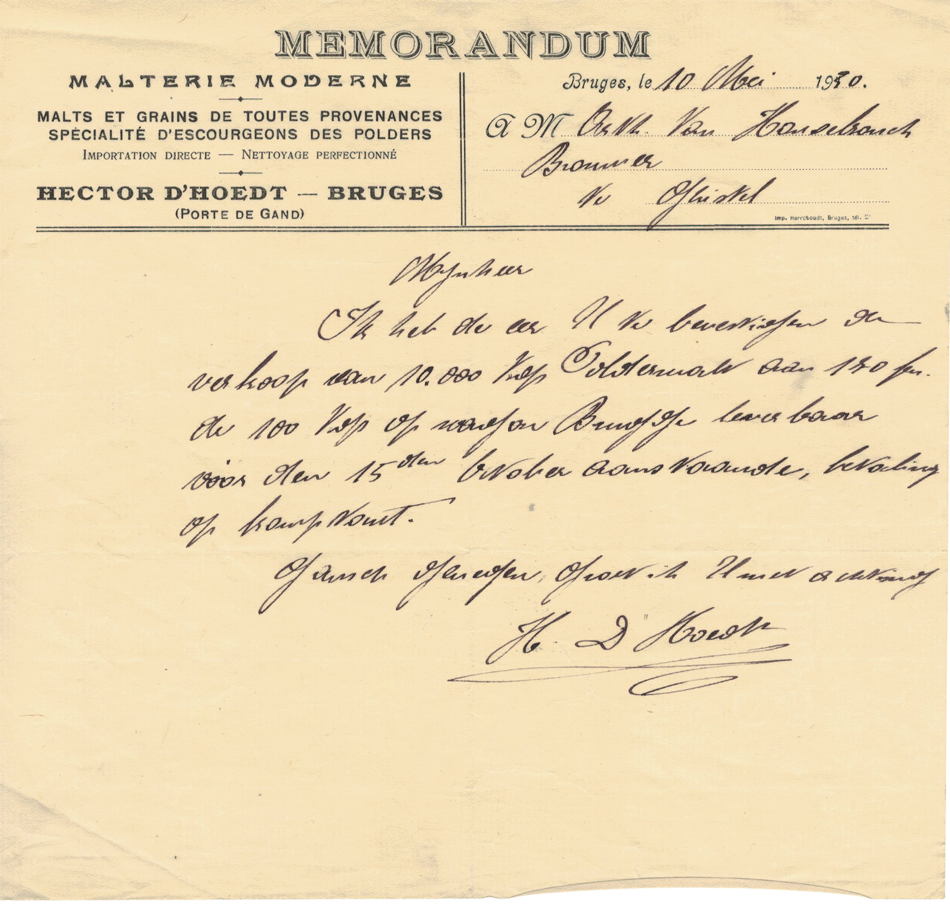 MEMORANDUM
MALTERIE MODERNE
MALTS ET GRAINS DE TOUTES PROVENANCES
SPÉCIALITÉ D'ESCOURGEONS DES POLDERS
IMPORTATION DIRECTE — NETTOYAGE PERFECTIONNÉ
HECTOR D'HOEDT — BRUGES
(PORTE DE GAND)
Bruges, le 10 Mei 1930.
A M Van
Brouwer
te Ghistel
Imp. Herreboudt, Bruges,
Mynheer
Ik heb de eer U te bevestigen den
verkoop van 10.000 Kgr Poldermalt aan 130 fr.
de 100 Kgr op wagon Brugge leverbaar
vóór den 15den october aanstaande, betaling
op kompt.
Gansch genegen, groet ik U met achting
H. D'Hoedt